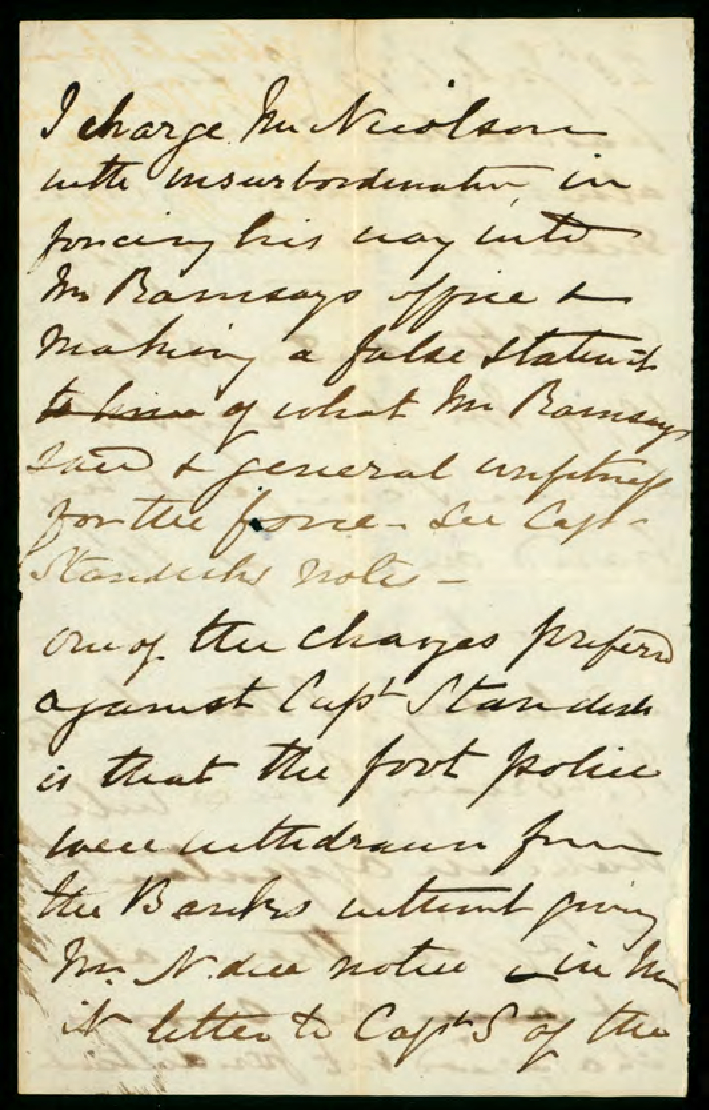 I charge Mr Nicolson
with insurbordination in
forcing his way into
Mr Ramsays office &
making a false statemt
to him of what Mr Ramsay
said & general unfitness
for the force - See Capt
Standishs notes -
one of the charges preferd
against Capt Standish
is that the foot police
were withdrawn from
the Banks without giving
Mr. N. due notice - in Mr
N letter to Capt S of the